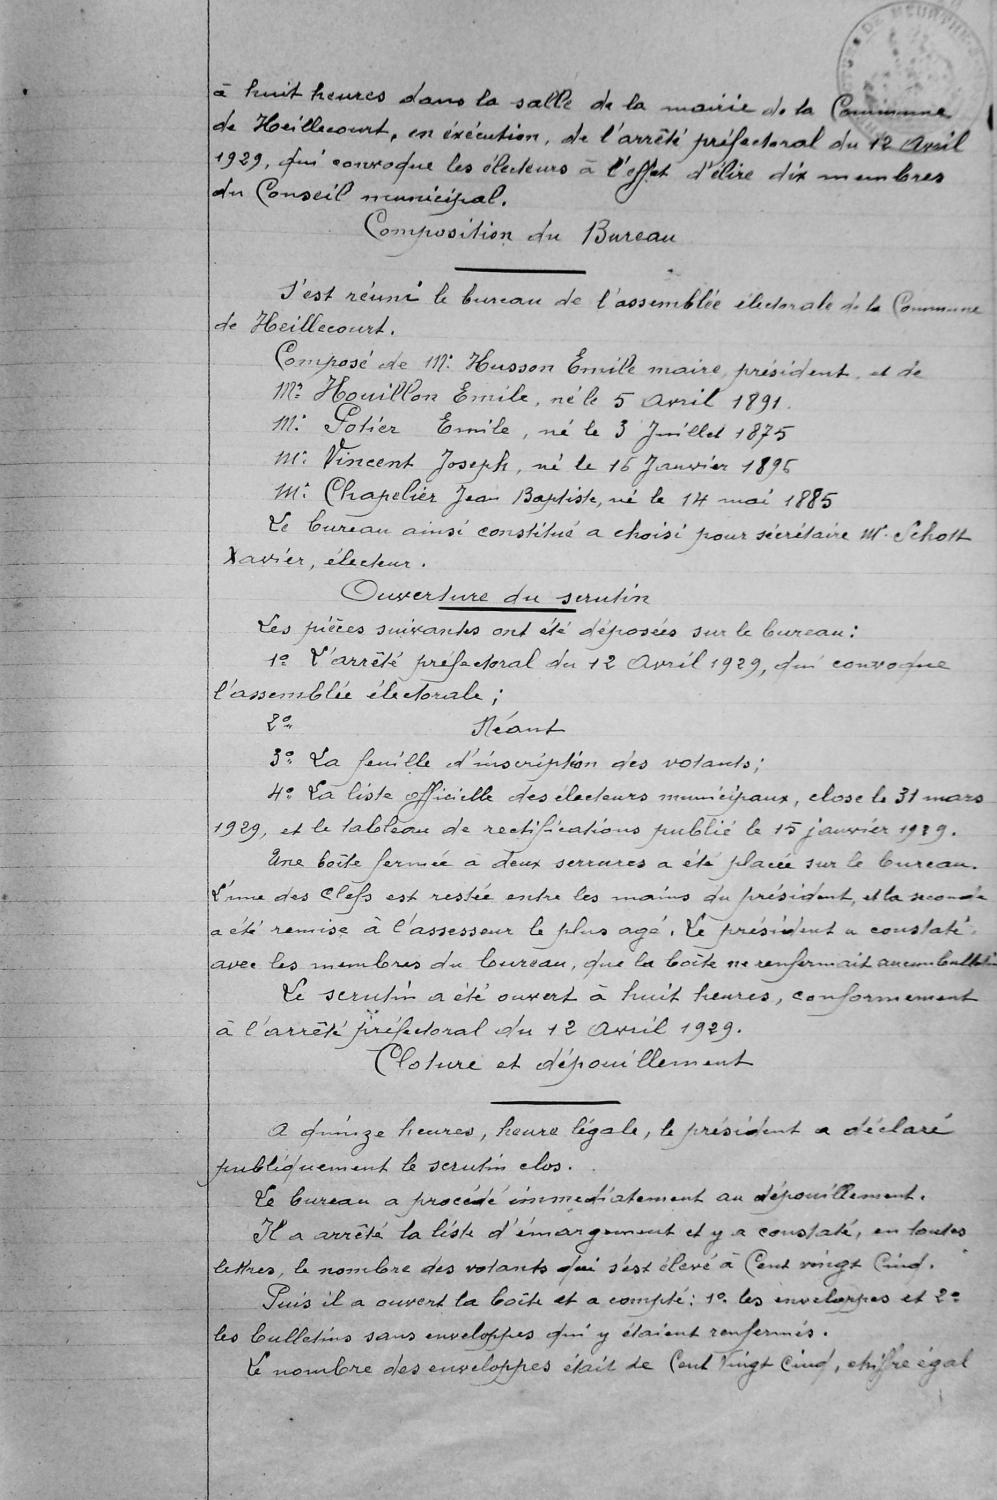 à huit heures dans la salle de la mairie de la Commune
de Heillecourt, en éxécution, de l'arrêté préfectoral du 12 Avril
1929, qui convoque les électeurs à l'effet d'élire dix membres
du Conseil municipal.
Composition du Bureau
S'est réuni le bureau de l'assemblée électorale de la Commune
de Heillecourt.
Composé de Mr. Husson Emile maire, président, et de
Mr. Houillon Emile, né le 5 Avril 1891.
Mr. Potier Emile, né le 3 Juillet 1875
Mr. Vincent Joseph, né le 16 Janvier 1896
Mr. Chapelier Jean Baptiste, né le 14 mai 1885
Le bureau ainsi constitué a choisi pour sécrétaire Mr. Schott
Xavier, électeur.
Ouverture du scrutin
Les pièces suivantes ont été déposées sur le bureau:
1º L'arrêté préfectoral du 12 Avril 1929, qui convoque
l'assemblée électorale;
2º Néant
3º La feuille d'inscription des votants;
4º La liste officielle des électeurs municipaux, close le 31 mars
1929, et le tableau de rectifications publié le 15 janvier 1929.
Une boîte fermée à deux serrures a été placée sur le bureau.
L'une des clefs est restée entre les mains du président, et la seconde
a été remise à l'assesseur le plus agé. Le président a constaté,
avec les membres du bureau, que la boîte ne renfermait aucun bulletin
Le scrutin a été ouvert à huit heures, conformement
à l'arrêté préfectoral du 12 Avril 1929.
Cloture et dépouillement
A quinze heures, heure légale, le président a déclaré
publiquement le scrutin clos.
Le bureau a procédé immediatement au dépouillement.
Il a arrêté la liste d'émargement et y a constaté, en toutes
lettres, le nombre des votants qui s'est élevé à Cent vingt Cinq.
Puis il a ouvert la boîte et a compté: 1º les enveloppes et 2º
les bulletins sans enveloppes qui y étaient renfermés.
Le nombre des enveloppes était de Cent Vingt Cinq, chiffre égal